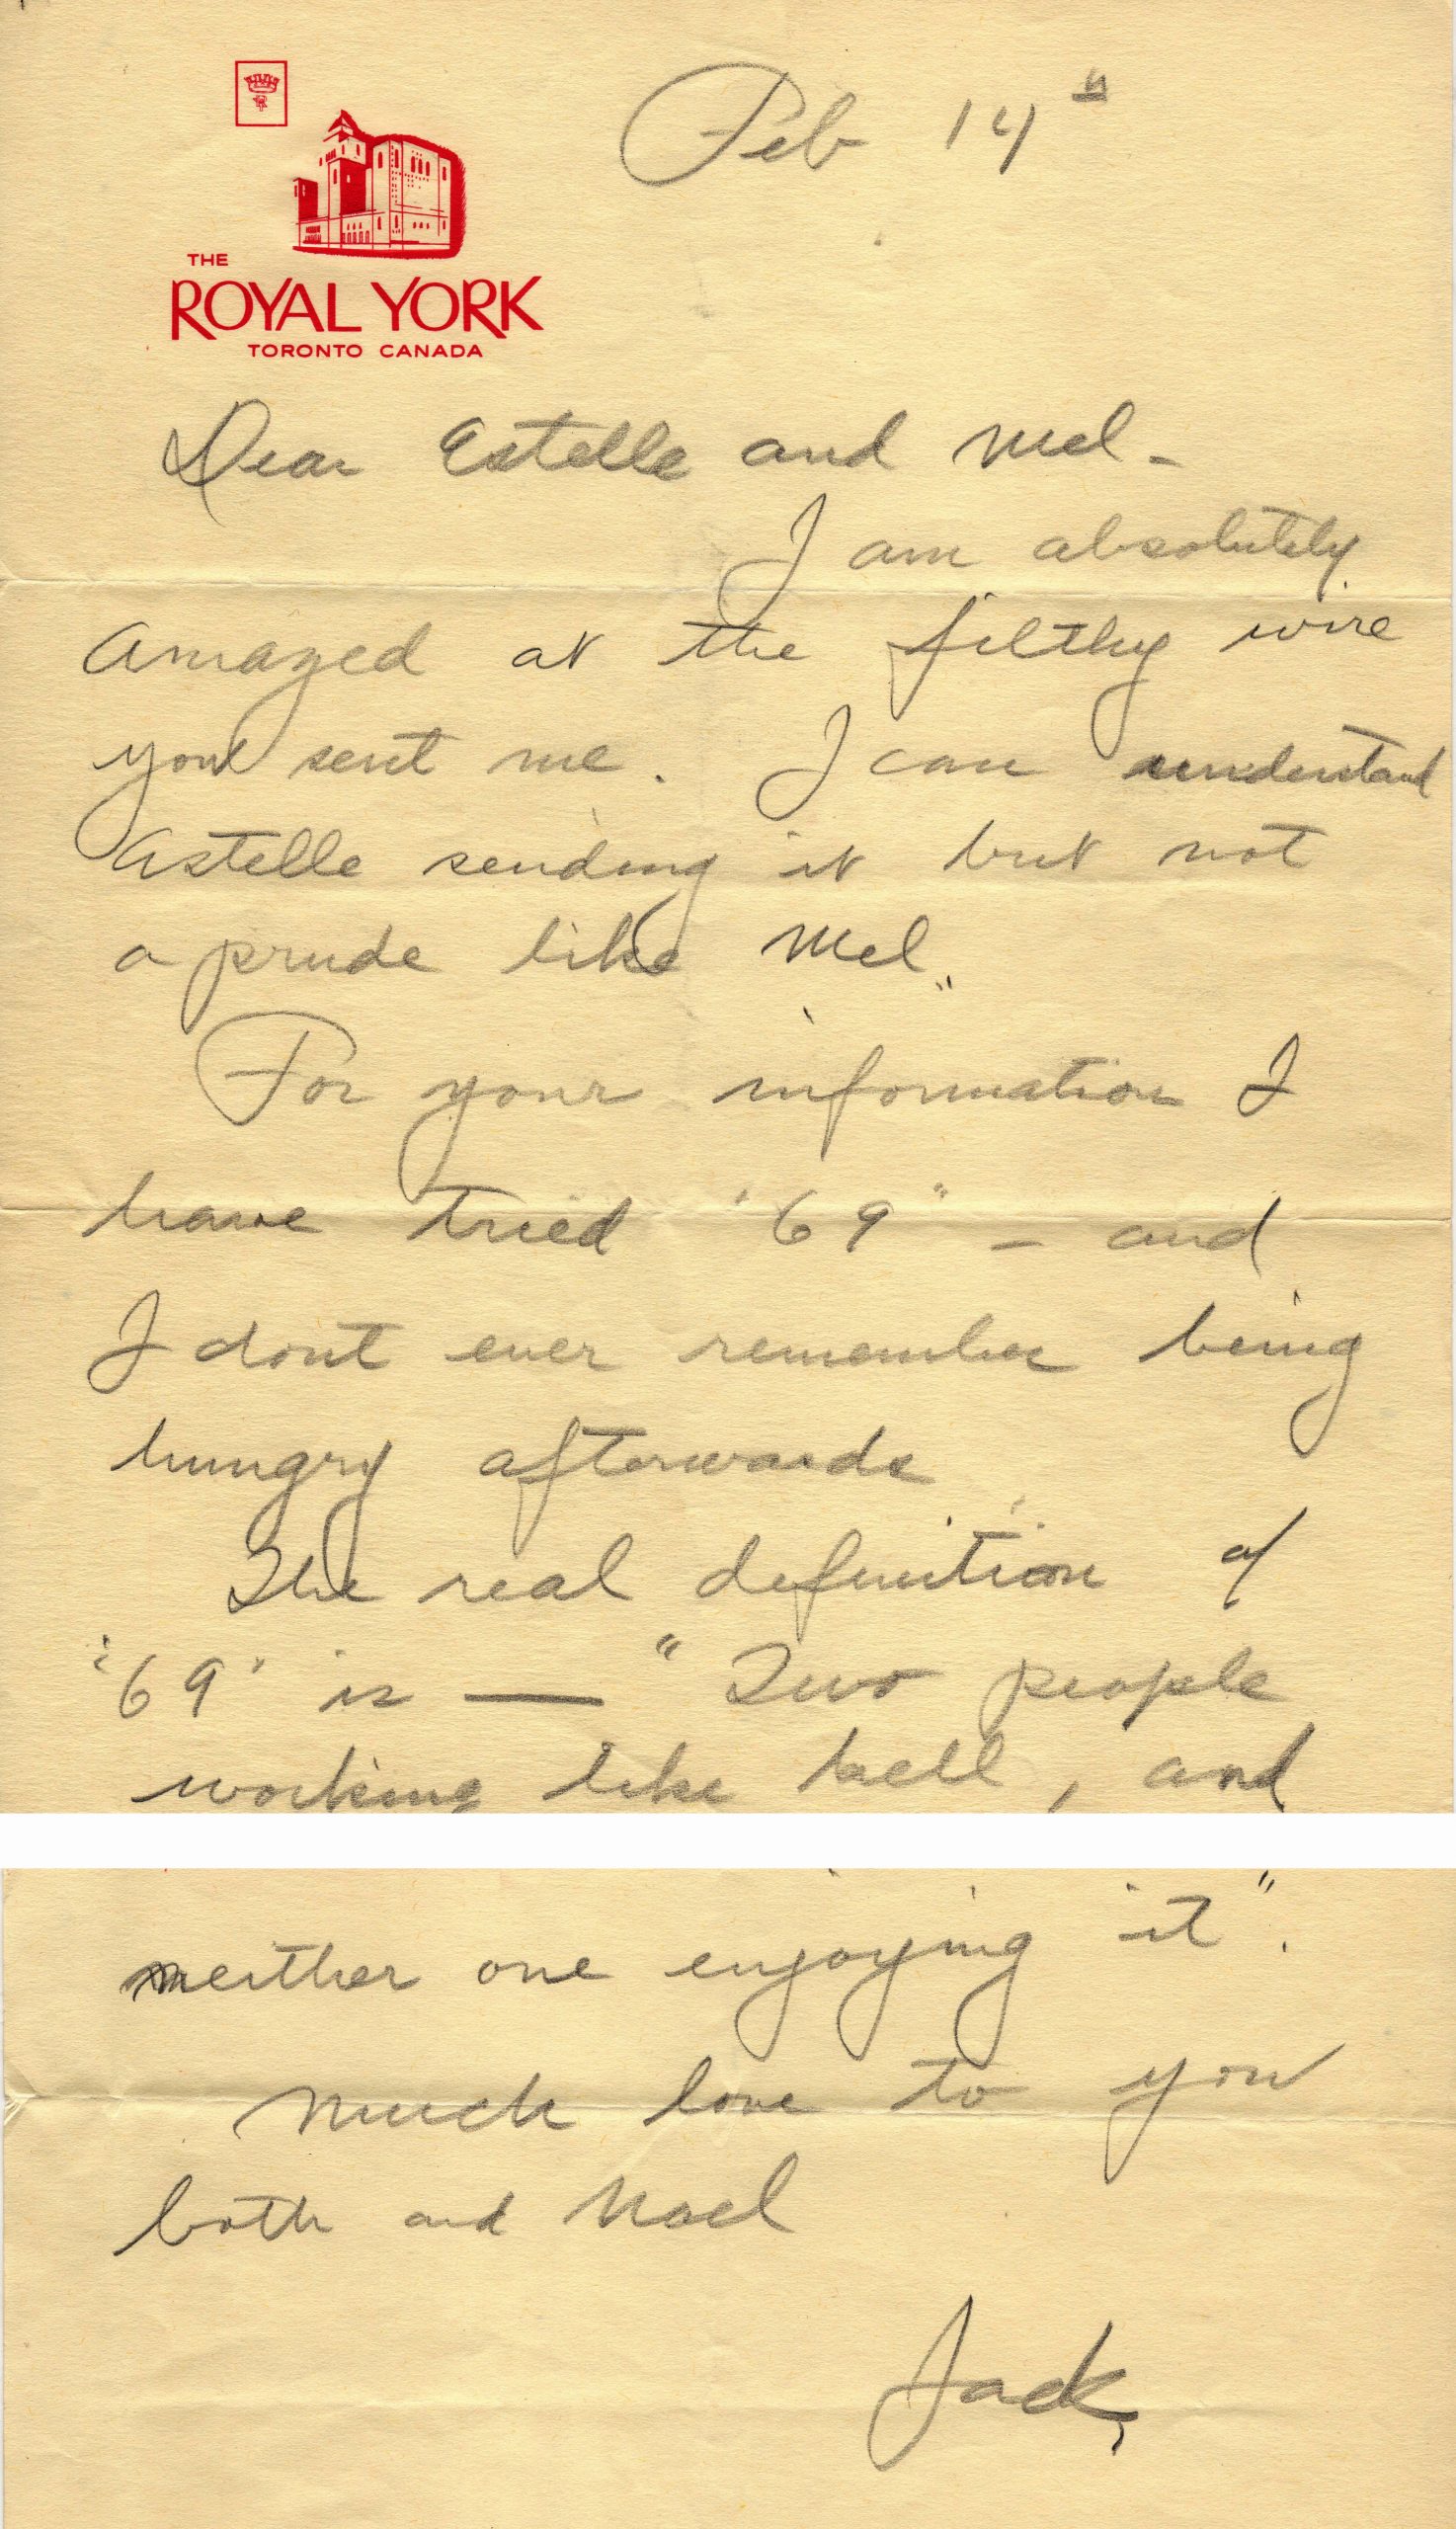 Feb 14th
THE
ROYAL YORK
TORONTO CANADA
Dear Estelle and Mel -
I am absolutely
amazed at the filthy wire
you sent me. I can understand
Astelle sending it but not
a prude like Mel.
For your information I
have tried '69" - and
I dont ever remember being
hungry afterwards
The real definition of
"69" is — "Two people
working like hell, and
neither one enjoying it".
Much love to you
both and Noel
Jack